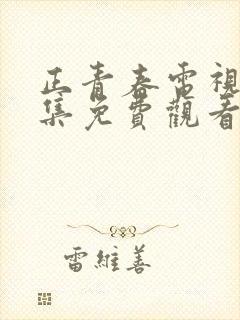 正青春電視
集免費觀看
雷維善